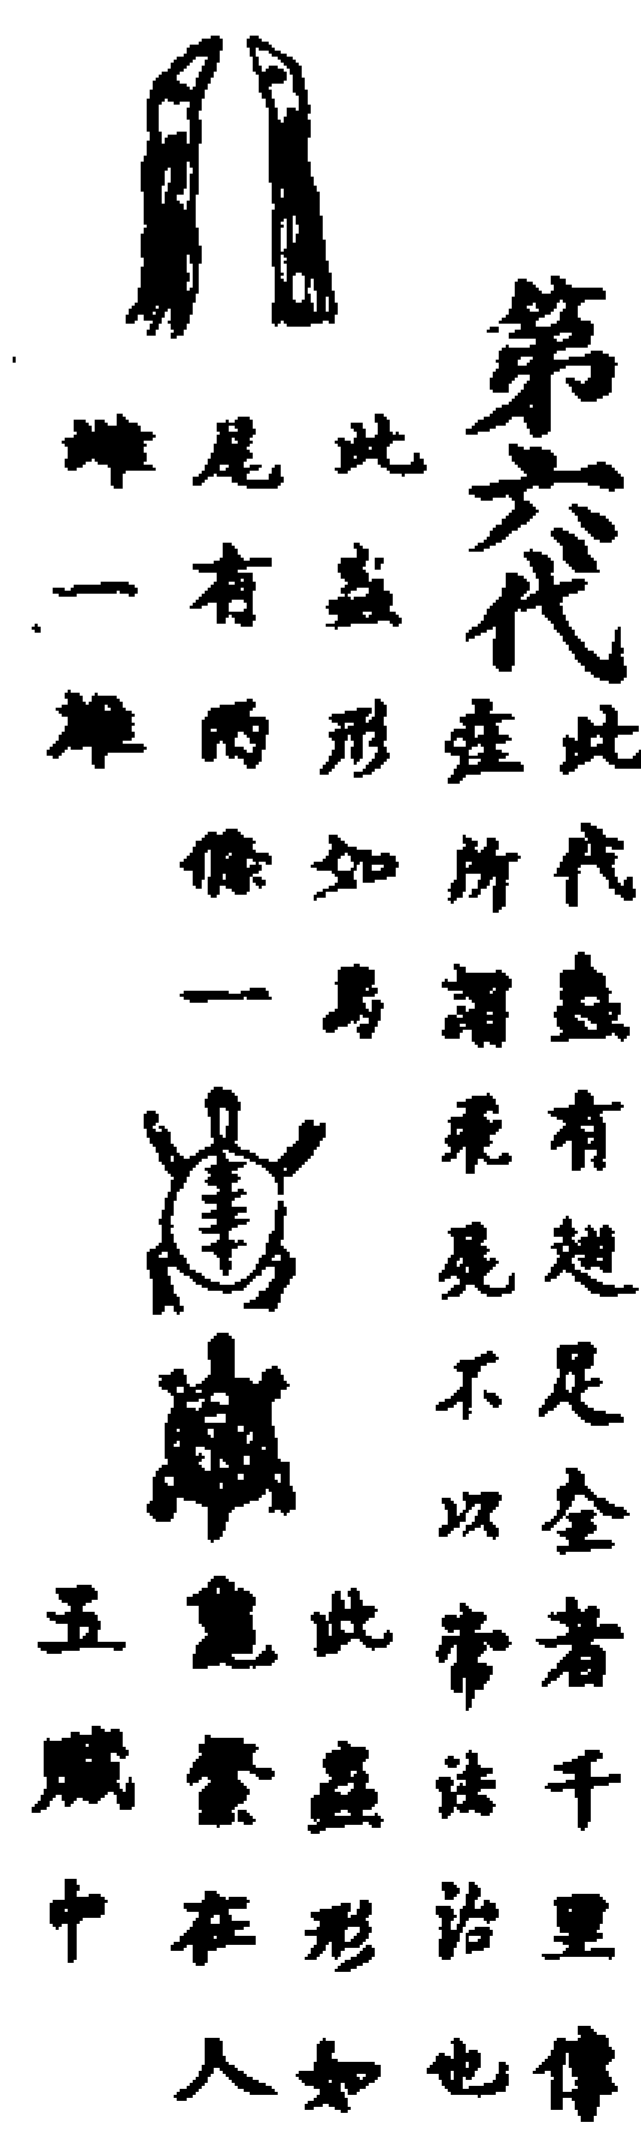 第六代
此代蟲有翅足全者千里傳
疰所謂飛尾不以常法治也
此蟲形如馬
尾有兩條一
雌一雄
此蟲形如
鱉在人
五臟中